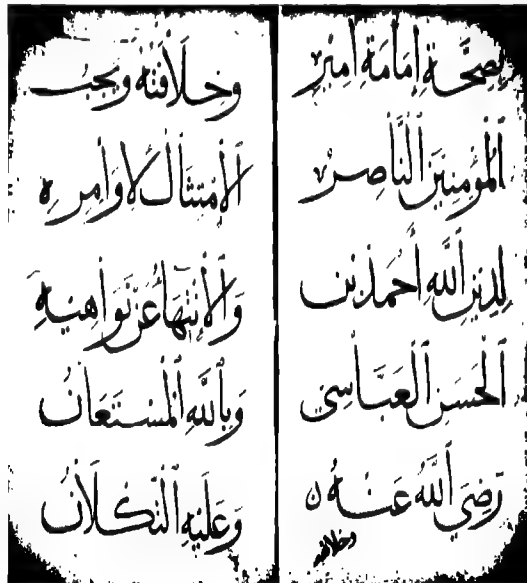 بِصِحَّةِ إِمَامَةِ أَمِيرِ
ٱلْمُؤْمِنِينَ ٱلنَّاصِرِ
لِدِينِ ٱللَّهِ أَحْمَدَ بْنِ
ٱلْحَسَنِ ٱلْعَبَّاسِيِّ
رَضِيَ ٱللَّهُ عَنْهُ
وخلافته
وَخِلَافَتِهِ وَيَجِبُ
ٱلْاِمْتِثَالُ لِأَوَامِرِهِ
وَٱلْاِنْتِهَاءُ عَنْ نَوَاهِيهِ
وَبِٱللَّهِ ٱلْمُسْتَعَانُ
وَعَلَيْهِ ٱلتُّكْلَانُ